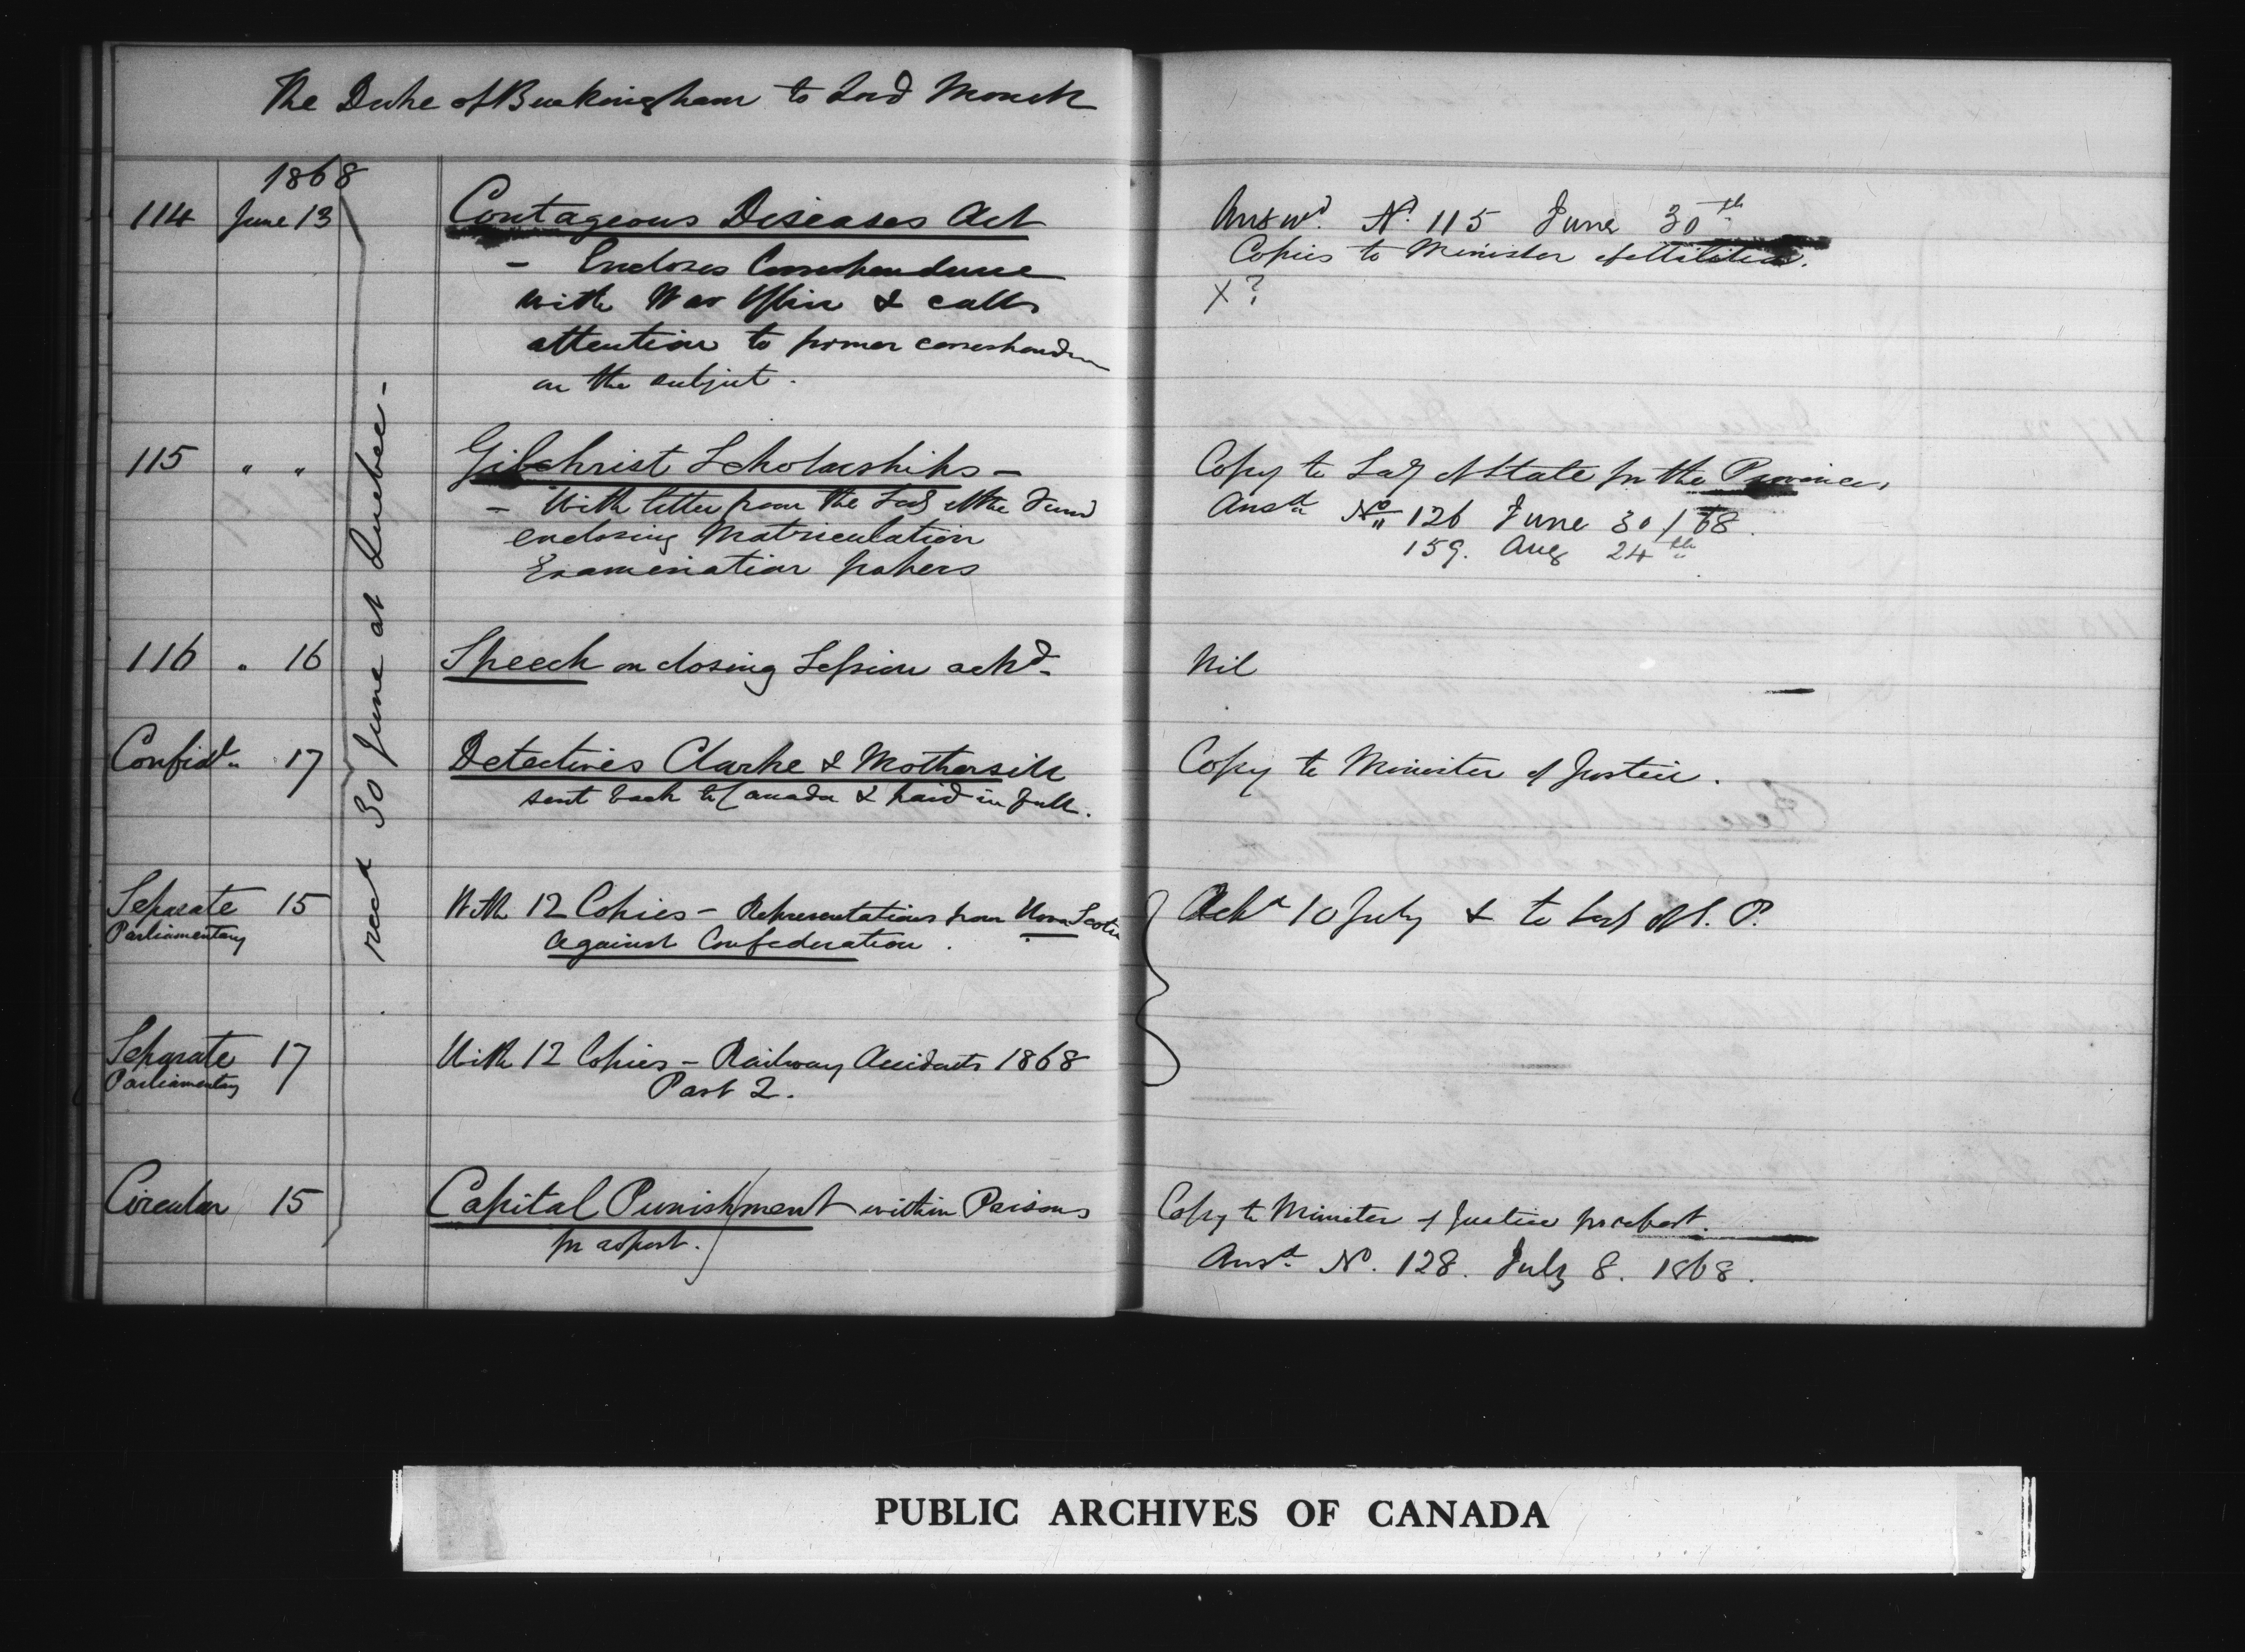 The Duke of Buckingham to Lord Monck
1868
114 June 13 Contageous Diseases Act
- Encloses Correspondence
with War Office & calls
attention to former correspondence
on the subject.
Answd. No. 115 June 30th
Copies to Minister of Militia.
X?
recd 30 June at Quebec -
115 " " Gilchrist Scholarships -
- With letter from the Secy of the Fund
enclosing Matriculation
Examination papers
Copy to Secy of State for the Provinces,
Ansd No. 126 June 30/68.
" 159. Aug 24th
116 " 16 Speech on closing Session ackd.
Nil
Confidl. 17 Detectives Clarke & Mothersill
sent back to Canada & paid in full.
Copy to Minister of Justice.
Separate 15 With 12 Copies - Representations from Nova Scotia
Parliamentary against Confederation.
Ackd 10 July & to
Separate 17 With 12 Copies - Railway Accidents 1868
Parliamentary Part 2.
Circular 15 Capital Punishment within Prisons
for report.
Copy to Minister of Justice for report.
Ansd. No. 128. July 8. 1868.
PUBLIC ARCHIVES OF CANADA